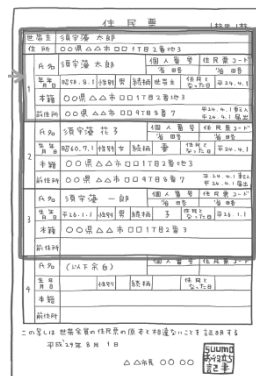 住民票
世帯主 須宇藻 太郎
住所 〇〇県△△市□□1丁目2番地3
1 氏名 須宇藻 太郎 個人番号 省略 住民票コード 省略
生年月日 昭58.8.1 性別 男 続柄 世帯主 住民となった日 平24.4.1
本籍 〇〇県△△市□□1丁目2番地3
前住所 〇〇県△△市□□9丁目8番7 平24.4.1転入 平24.4.1届出
2 氏名 須宇藻 花子 個人番号 省略 住民票コード 省略
生年月日 昭60.7.1 性別 女 続柄 妻 住民となった日 平24.4.1
本籍 〇〇県△△市□□1丁目2番地3
前住所 〇〇県△△市□□9丁目8番7 平24.4.1転入 平24.4.1届出
3 氏名 須宇藻 一郎 個人番号 省略 住民票コード 省略
生年月日 平26.1.1 性別 男 続柄 子 住民となった日 平26.1.1
本籍 〇〇県△△市□□1丁目2番3
前住所
4 氏名 (以下余白) 個人番号 住民票コード
生年月日 性別 続柄 住民となった日
本籍
前住所
この写しは世帯全員の住民票の原本と相違ないことを証明する
平成29年8月1日
△△市長 〇〇 〇〇
suumo